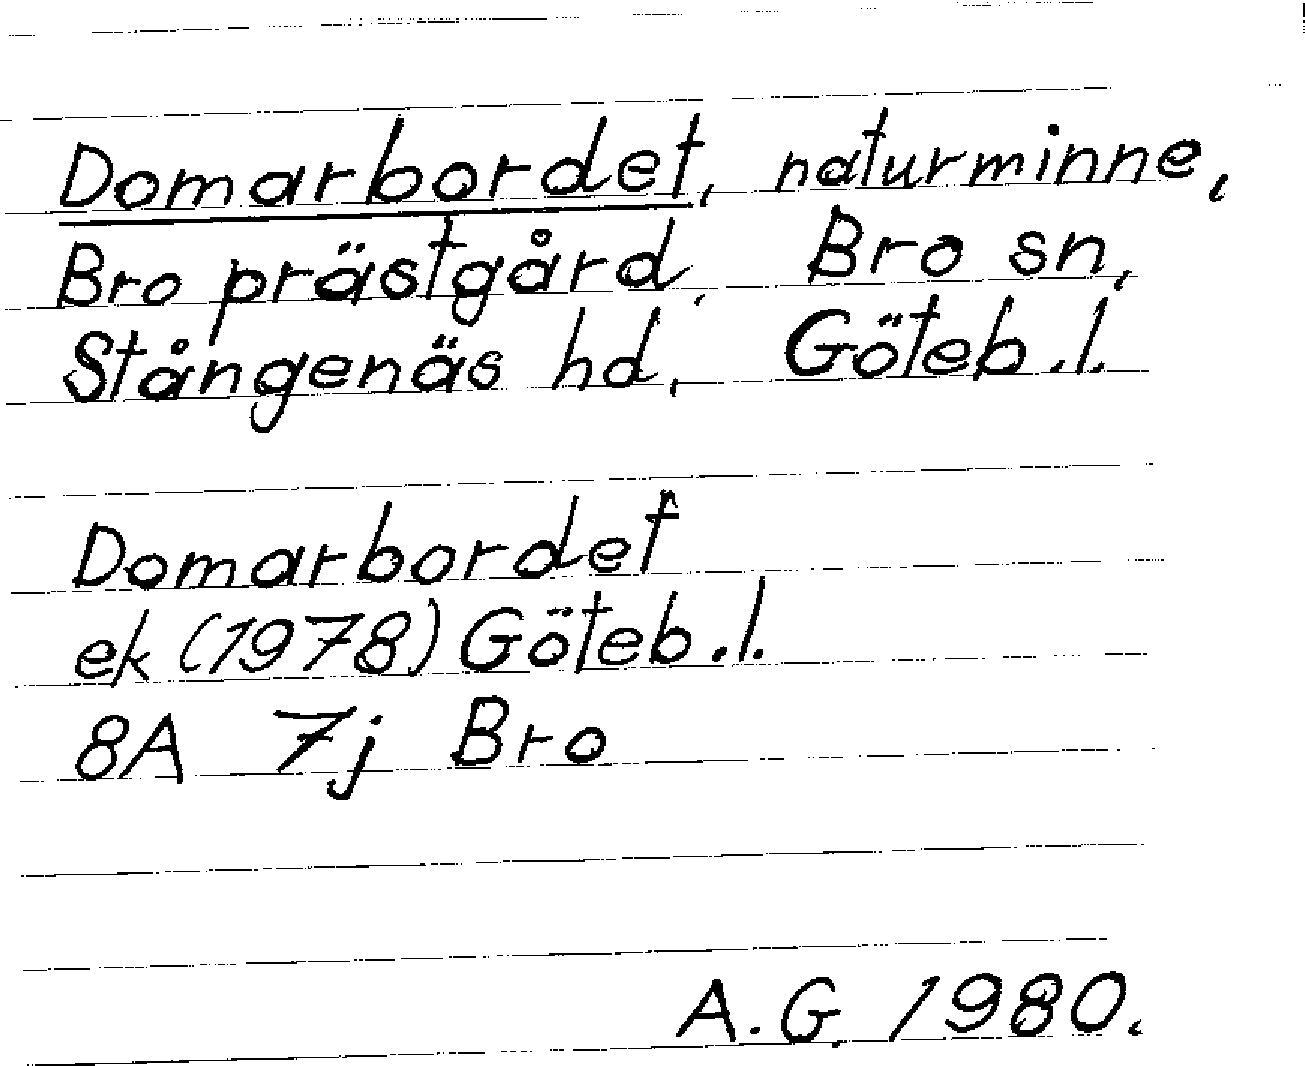 Domarbordet, naturminne,
Bro prästgård, Bro sn,
Stångenäs hd, Göteb.l.
Domarbordet
ek (1978) Göteb.l.
8A 7j Bro
A.G. 1980.